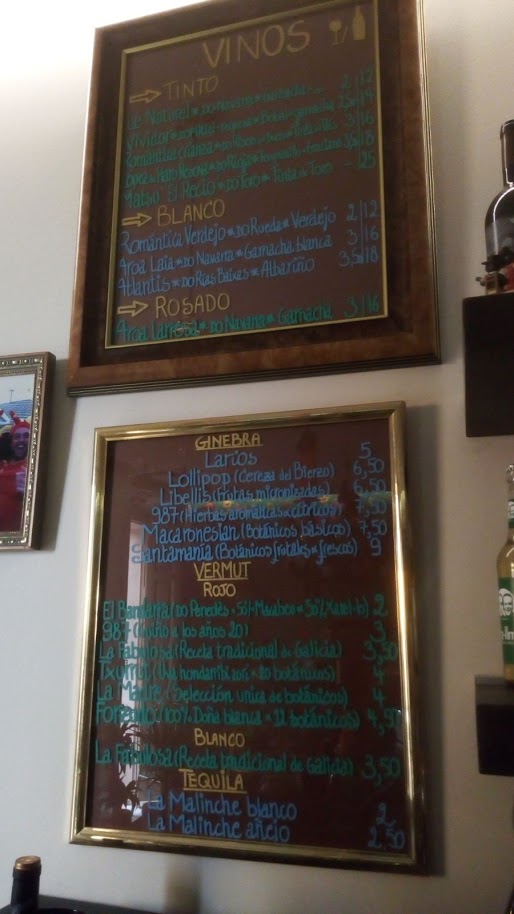 VINOS
TINTO
Lic Naturel * DO Navarra * Garnacha 2 | 12
Vividor * DO Garnacha 2,5 | 14
Romántica Crianza * DO 3 | 16
Haro Reserva * DO Rioja * Tempranillo 3,5 | 18
Matsu "El Recio" * DO Toro * Tinta de Toro - | 25
BLANCO
Romántica Verdejo * DO Rueda * Verdejo 2 | 12
Aroa Laia * DO Navarra * Garnacha blanca 3 | 16
Atlantis * DO Rías Baixas * Albariño 3,5 | 18
ROSADO
Aroa Larrosa * DO Navarra * Garnacha 3 | 16
GINEBRA
Larios 5
Lollipop (Cereza del Bierzo) 6,50
Libellis (Frutas micronizadas) 6,50
987 (Hierbas aromáticas * cítricos) 7,50
Macaronesian (Botánicos básicos) 7,50
Santamanía (Botánicos frutales * frescos) 9
VERMUT
ROJO
El Bandarra (DO Penedés * 50% Macabeo * 50% Xarel·lo) 2
987 (Guiño a los años 20) 3
La Fabulosa (Receta tradicional de Galicia) 3,50
Txurrut (Uva hondarribi zuri * 20 botánicos) 4
La Madre (Selección única de botánicos) 4
100% Doña blanca * 12 botánicos) 4,50
BLANCO
La Fabulosa (Receta tradicional de Galicia) 3,50
TEQUILA
La Malinche blanco 2
La Malinche añejo 2,50